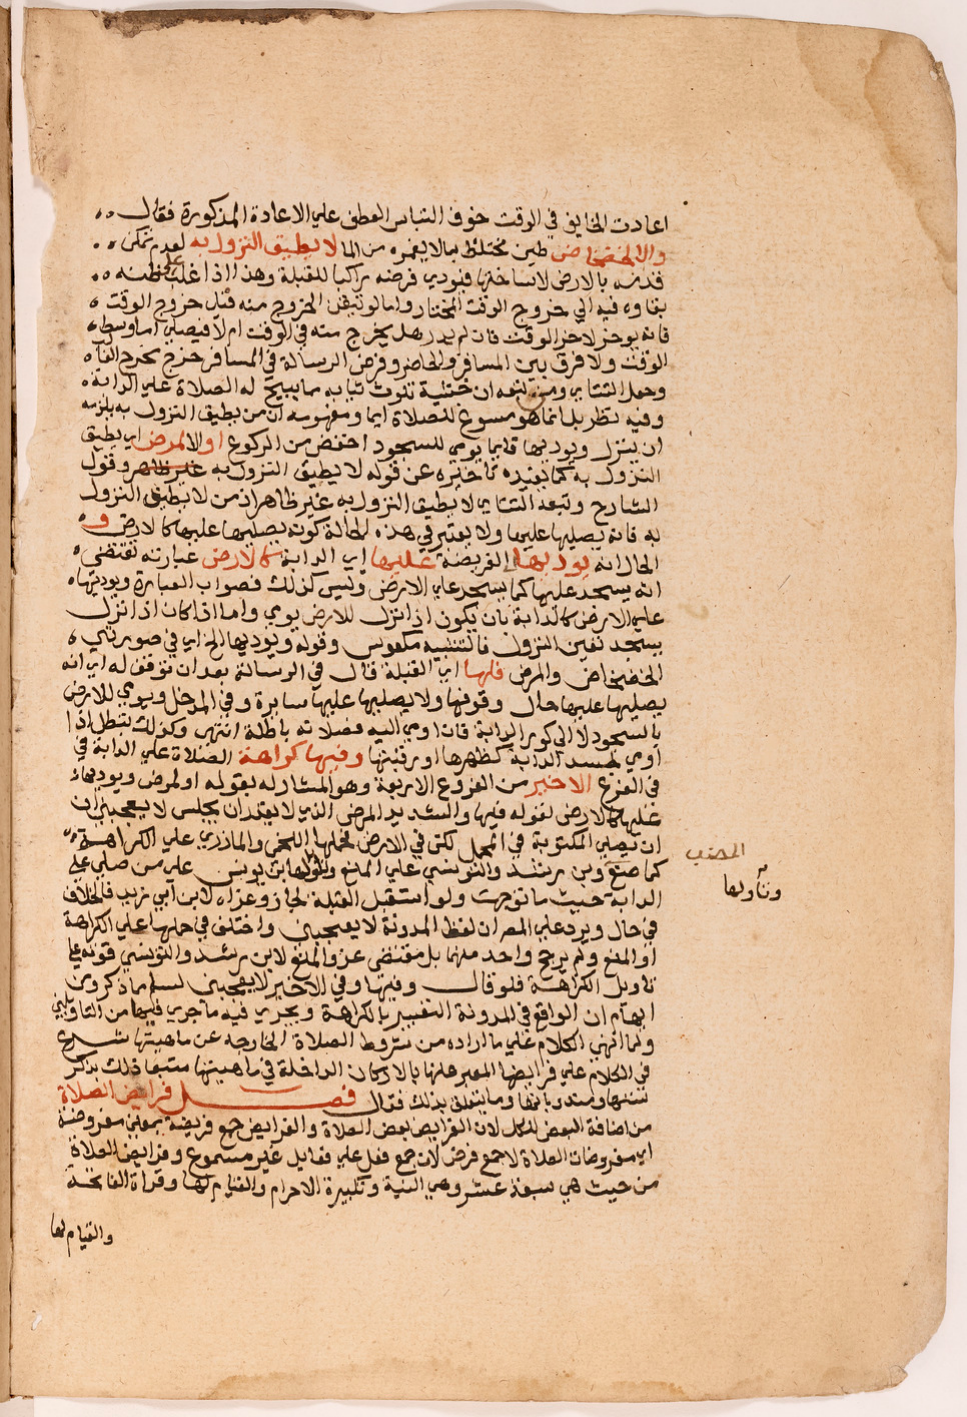 اعادت الخايف في الوقت خوف التباس العطف علي الاعادة المذكورة فقال
والا لخضخاض طين مختلط بما لا يغمره من الما لا يطيق النزول به لعدم تمكن
قدمه بالارض لانساخها فيودي فرضه راكبا للقبلة وهذا اذا غلب علي ظنه
بقاوه فيه الي خروج الوقت المختار واما لو تيقن الخروج منه قبل خروج الوقت
فانه يوخر لاخر الوقت فان لم يدر هل يخرج منه في الوقت ام لا فيصلي اما وسط
الوقت ولا فرق بين المسافر والحاضر وفرض الرسالة في المسافر خرج مخرج الغالب
وجعل التتاي ومن تبعه ان خشية تلوث ثيابه مما يبيح له الصلاة علي الدابة
وفيه نظر بل انما هو مسوغ للصلاة ايما ومفهومه ان من يطيق النزول به يلزمه
ان ينزل ويوديها قايما يومي للسجود اخفض من الركوع او الا لمرض اي يطيق
النزول به كما يفيده تاخيره عن قوله لا يطيق النزول به غير ظاهر وقول
الشارح وتبعه التتاي لا يطيق النزول به غير ظاهر اذ من لا يطيق النزول
به فانه يصليها عليها ولا يعتبر في هذه الحالة كونه يصليها عليها كالارض و
الحال انه يوديها اي الفريضة عليها اي الدابة كالارض عبارته تقتضي
انه يسجد عليها كما يسجد علي الارض وليس كذلك فصواب العبارة ويوديها
علي الارض كالدابة بان يكون اذا نزل للارض يومي واما اذا كان اذا نزل
يسجد تعين النزول فالتشبيه معكوس وقوله ويوديها الخ اي في صورتي
الخضخاض والمرض فلها اي القبلة قال في الرسالة بعد ان توقف له اي انه
يصليها عليها حال وقوفها ولا يصليها عليها سايرة وفي المدخل ويومي للارض
بالسجود لا الي كور الدابة فان اومي اليه فصلاته باطلة انتهي وكذلك تبطل اذا
اومي لجسد الدابة كظهرها او رقبتها وفيها كراهة الصلاة علي الدابة في
في الفرع الاخير من الفروع الاربعة وهو المشار له بقوله او لمرض ويوديها
عليها كالارض لقوله فيها والشديد المرض الذي لا يقدر ان يجلس لا يعجبني ان
ان يصلي المكتوبة في المحمل لكن في الارض فحملها اللخمي والمازري علي الكراهة
كما صنع وبن رشد والتونسي علي المنع وتاولها بن يونس علي من صلي علي
الدابة حيث ما توجهت ولو استقبل القبلة لجاز وعزاه لابن ابي زيد فالخلاف
في حال ويرد علي المص ان لفظ المدونة لا يعجبني واختلف في حملها علي الكراهة
او المنع ولم يرجح واحد منهما بل مقتضي عزو المنع لابن رشد والتونسي قوته علي
تاويل الكراهة فلو قال وفيها وفي الاخير لا يعجبني لسلم مما ذكر ومن
ابهام ان الواقع في المدونة التعبير بالكراهة ويجري فيه ما جري فيها من التاويلين
ولما انهي الكلام علي ما اراده من شروط الصلاة الخارجه عن ماهيتها شرع
في الكلام علي فرايضها المعبر عنها بالاركان الداخلة في ماهيتها متبعا ذلك بذكر
سننها ومندوباتها وما يتعلق بذلك فقال فصل فرايض الصلاة
من اضافة البعض للكل لان الفرايض بعض الصلاة والفرايض جمع فريضة بمعني مفروضة
اي مفروضات الصلاة لا جمع فرض لان جمع فعل علي فعايل غير مسموع وفرايض الصلاة
من حيث هي سبعة عشر وهي النية وتكبيرة الاحرام والقيام لها وقراة الفاتحة
والقيام لها
وتاولها